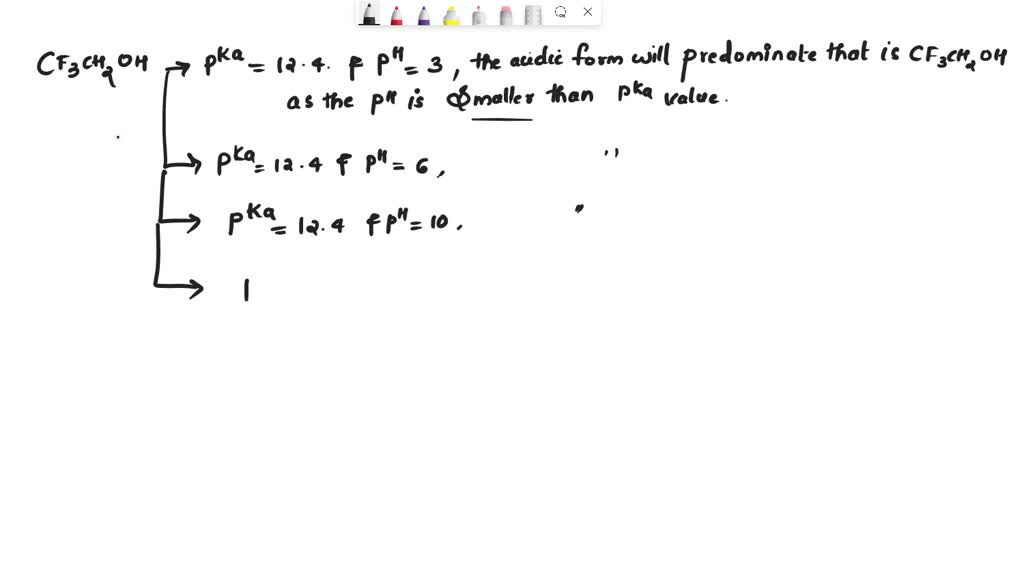 CF3CH2OH → pKa = 12.4. & pH = 3, the acidic form will predominate that is CF3CH2OH
as the pH is smaller than pKa value.
→ pKa = 12.4 & pH = 6, "
→ pKa = 12.4 & pH = 10. "
→ 1